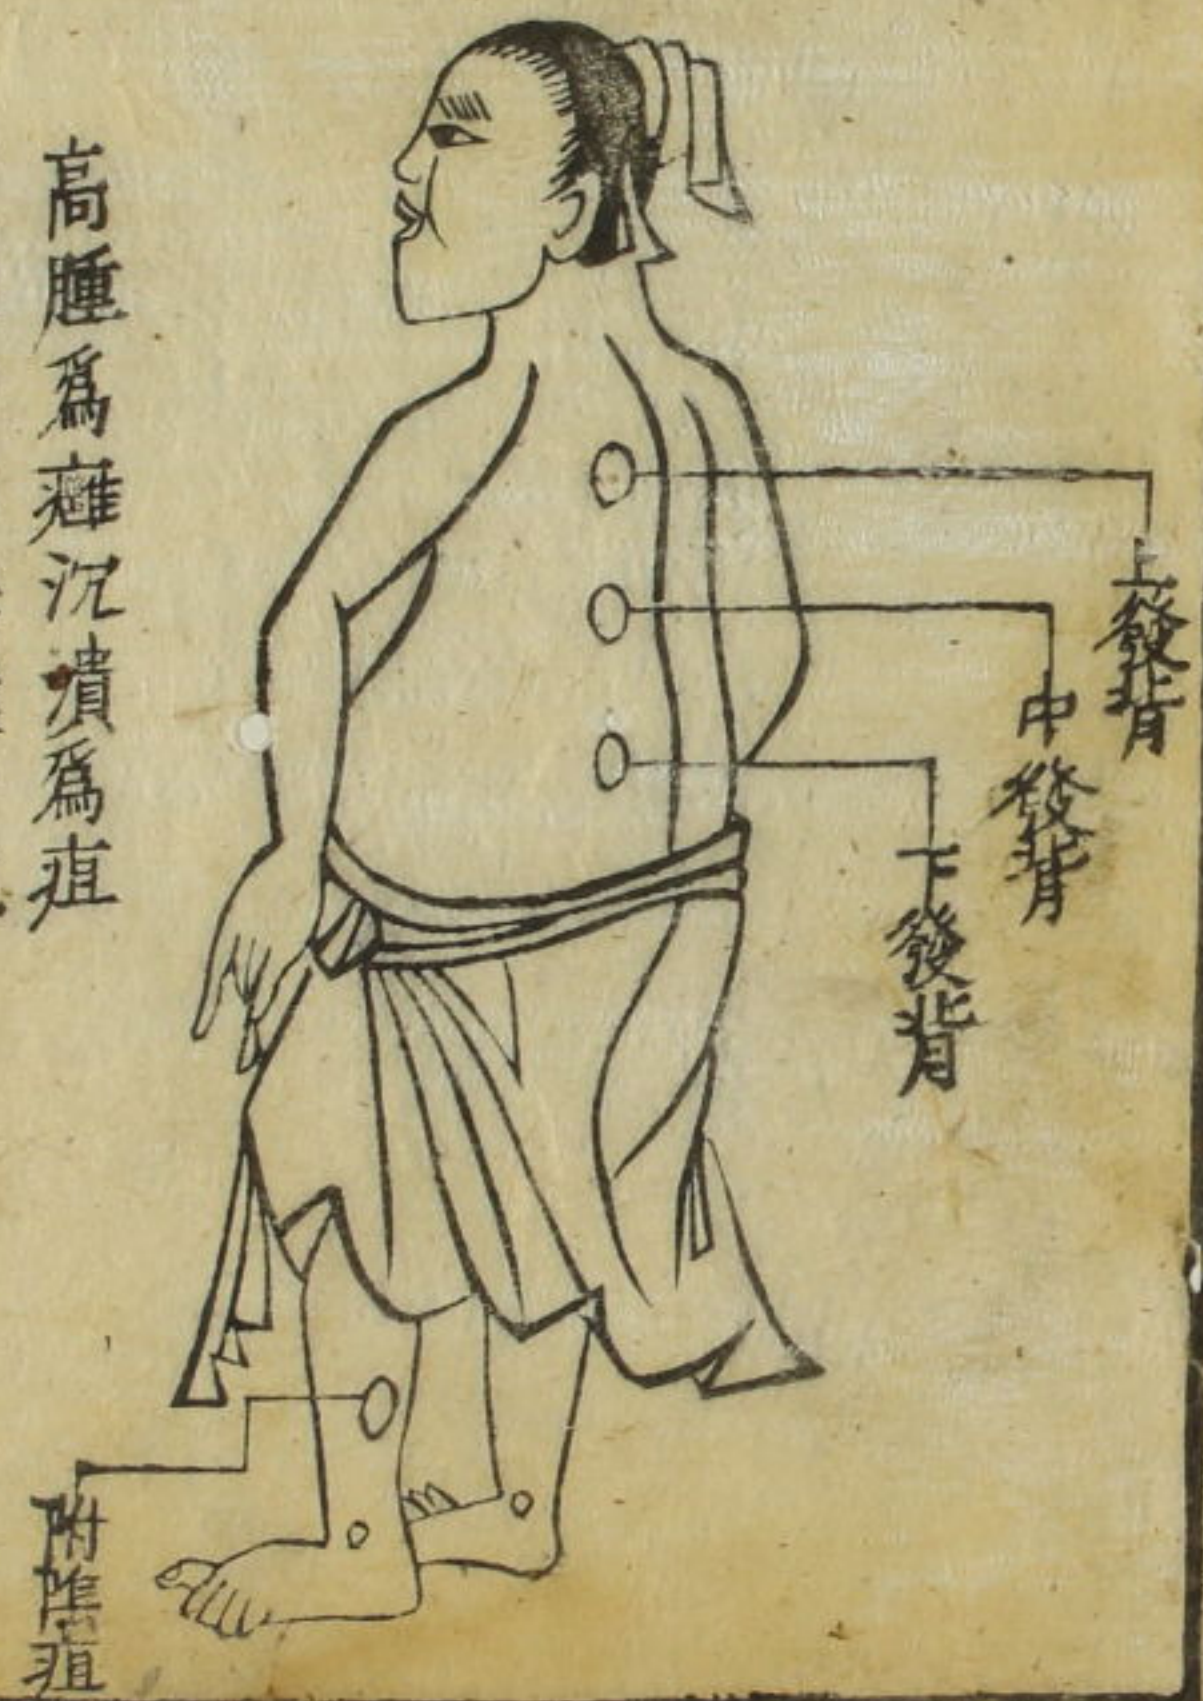 上發背
中發背
下發背
高腫爲癰沉潰爲疽
附陰疽